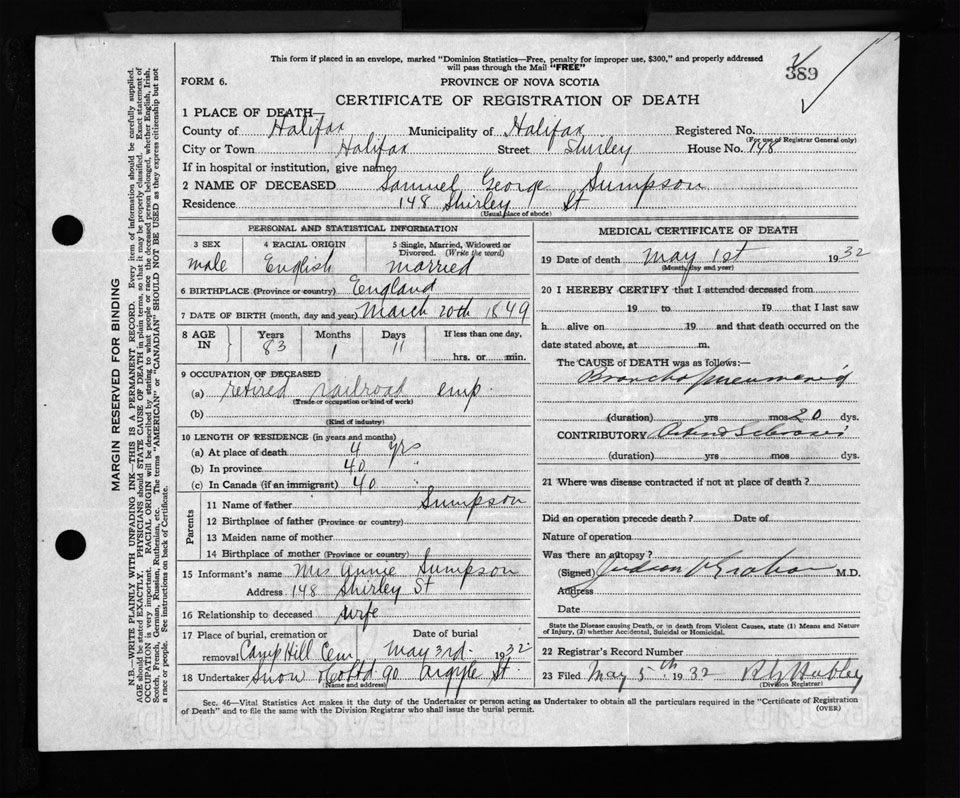 This form if placed in an envelope, marked "Dominion Statistics—Free, penalty for improper use, $300," and properly addressed
will pass through the Mail "FREE"
389
FORM 6.
PROVINCE OF NOVA SCOTIA
CERTIFICATE OF REGISTRATION OF DEATH
1 PLACE OF DEATH—
County of Halifax Municipality of Halifax Registered No.
(For use of Registrar General only)
City or Town Halifax Street Shirley House No. 148
If in hospital or institution, give name
2 NAME OF DECEASED Samuel George Sumpson
Residence 148 Shirley St
(Usual place of abode)
PERSONAL AND STATISTICAL INFORMATION
3 SEX 4 RACIAL ORIGIN 5 Single, Married, Widowed or Divorced. (Write the word)
male English married
6 BIRTHPLACE (Province or country) England
7 DATE OF BIRTH (month, day and year) March 20th 1849
8 AGE IN Years Months Days If less than one day,
83 1 11 hrs. or min.
9 OCCUPATION OF DECEASED
(a) retired railroad emp.
(Trade or occupation or kind of work)
(b)
(Kind of industry)
10 LENGTH OF RESIDENCE (in years and months)
(a) At place of death 4 yrs
(b) In province 40 "
(c) In Canada (if an immigrant) 40 "
Parents
11 Name of father Sumpson
12 Birthplace of father (Province or country)
13 Maiden name of mother
14 Birthplace of mother (Province or country)
15 Informant's name Mrs Annie Sumpson
Address 148 Shirley St
16 Relationship to deceased wife
17 Place of burial, cremation or Date of burial
removal Camp Hill Cem May 3rd 1932
18 Undertaker Snow & Co Ltd 90 Argyle St
(Name and address)
MEDICAL CERTIFICATE OF DEATH
19 Date of death May 1st 1932
(Month, day and year)
20 I HEREBY CERTIFY that I attended deceased from
19 to 19 that I last saw
h alive on 19 and that death occurred on the
date stated above, at m.
The CAUSE OF DEATH was as follows:—
Broncho pneumonia
(duration) yrs mos 20 dys.
CONTRIBUTORY
(duration) yrs mos dys.
21 Where was disease contracted if not at place of death?
Did an operation precede death? Date of
Nature of operation
Was there an autopsy?
(Signed) Judson V Graham M.D.
Address
Date
State the Disease causing Death, or in death from Violent Causes, state (1) Means and Nature
of Injury, (2) whether Accidental, Suicidal or Homicidal.
22 Registrar's Record Number
23 Filed May 5th 1932 Hubley
(Division Registrar)
Sec. 46—Vital Statistics Act makes it the duty of the Undertaker or person acting as Undertaker to obtain all the particulars required in the "Certificate of Registration
of Death" and to file the same with the Division Registrar who shall issue the burial permit.
(OVER)
MARGIN RESERVED FOR BINDING
N.B.—WRITE PLAINLY WITH UNFADING INK—THIS IS A PERMANENT RECORD. Every item of information should be carefully supplied.
AGE should be stated EXACTLY. PHYSICIANS should STATE CAUSE OF DEATH in plain terms, so that it may be properly classified. Exact statement of
OCCUPATION is very important. RACIAL ORIGIN will be described by stating to what people or race the deceased person belonged, whether English, Irish,
Scotch, French, German, Russian, Ruthenian, etc. The terms "AMERICAN" or "CANADIAN" SHOULD NOT BE USED as they express citizenship but not
a race or people. See instructions on back of Certificate.